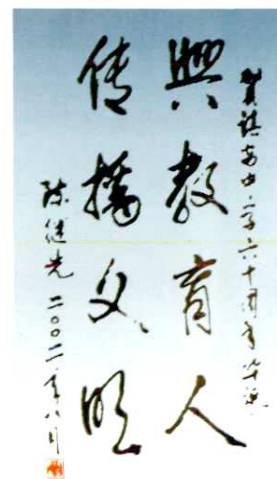 贺镇安中学六十周年华诞
興教育人
传播文明
陈继先 二〇〇二年八月